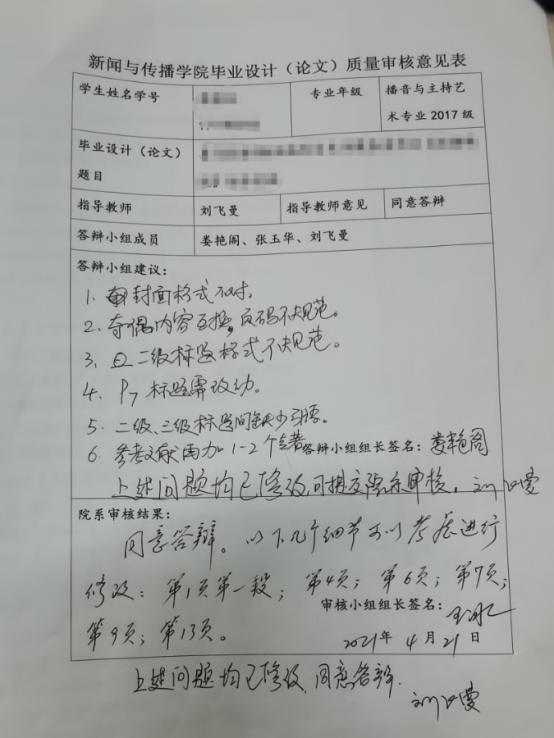 新闻与传播学院毕业设计（论文）质量审核意见表
学生姓名学号
专业年级
播音与主持艺
术专业 2017 级
毕业设计（论文）
题目
指导教师 刘飞曼 指导教师意见 同意答辩
答辩小组成员 娄艳阁、张玉华、刘飞曼
答辩小组建议：
1. 封面格式不对。
2. 奇偶内容互换，页码不规范。
3. 二级标题格式不规范。
4. P7 标题需改动。
5. 二级、三级标题间缺少引语。
6. 参考文献再加 1-2个
答辩小组组长签名：娄艳阁
上述问题均已修改，可提交院系审核。刘飞曼
院系审核结果：
同意答辩。以下几个细节可以考虑进行
修改：第1页第一段；第4页；第6页；第7页；
审核小组组长签名：
第9页；第13页。
2021年 4月 21日
上述问题均已修改，同意答辩.
刘飞曼